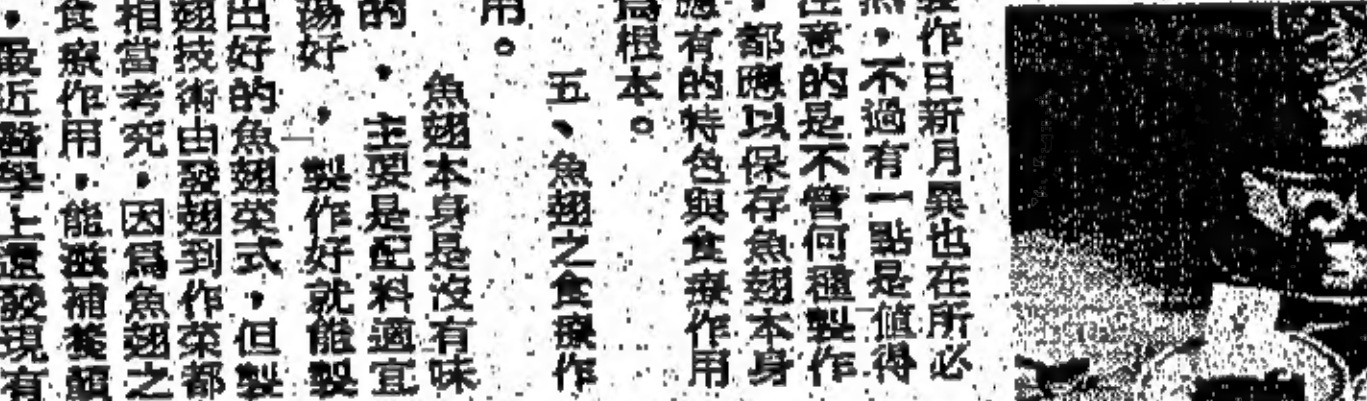 製作日新月異也在所必
然，不過有一點是值得
注意的是不管何種製作
，都應以保存魚翅本身
應有的特色與食療作用
為根本。
五、魚翅之食療作
用。
魚翅本身是沒有味
的，主要是配料適宜
湯好，製作好就能製
出好的魚翅菜式，但製
翅技術由發翅到作菜都
相當考究，因為魚翅之
食療作用，能滋補養顏
，最近醫學上還發現有